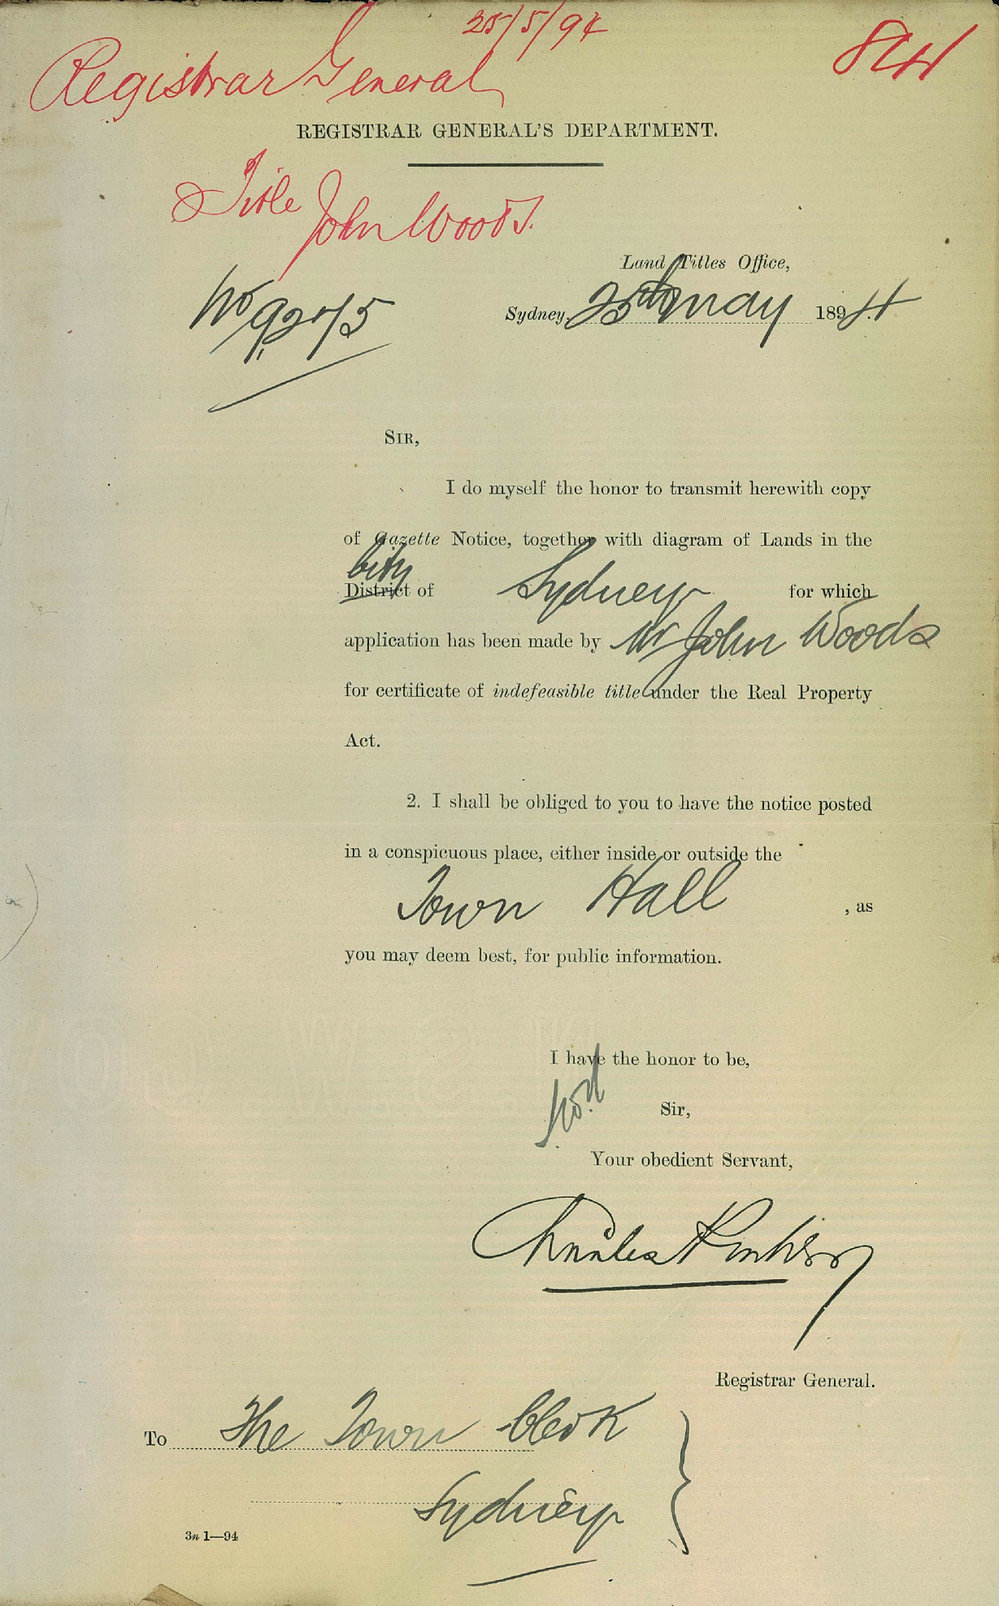 25/5/94
Registrar General
844
REGISTRAR GENERAL'S DEPARTMENT.
Title John Woods.
Land Titles Office,
No 9215
Sydney, 25th May 1894.
SIR,
I do myself the honor to transmit herewith copy
of Gazette Notice, together with diagram of Lands in the
City
District of Sydney for which
application has been made by Mr John Woods
for certificate of indefeasible title under the Real Property
Act.
2. I shall be obliged to you to have the notice posted
in a conspicuous place, either inside or outside the
Town Hall , as
you may deem best, for public information.
I have the honor to be,
Sir,
Your obedient Servant,
Charles
Registrar General.
To The Town Clerk
Sydney
3n 1—94